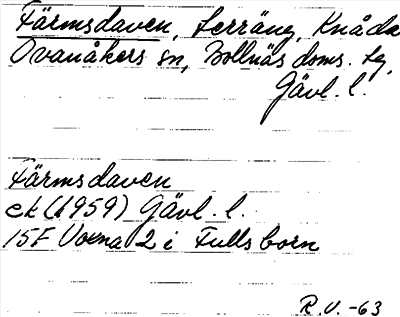 Färmsdaven, terräng, Knåda
Ovanåkers sn, Bollnäs doms. tg
Gävl. l.
Färmsdaven
ek (1959) Gävl. l.
15F Voxna 2 i Fullsborn
R.V. -63